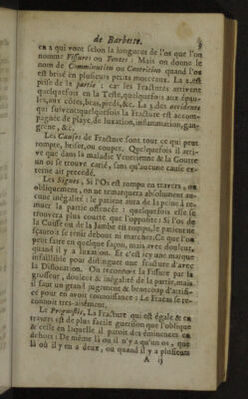 de Barbette.
en a qui vont selon la longueur de l'os que l'on
nomme Fissures ou Fentes; Mais on donne le
nom de Comminution ou Contrition quand l'os
est brisé en plusieurs petits morceaux. La 2. est
prise de la partie; car les Fractures arrivent
quelquefois en la Teste, quelquefois aux épau-
les, aux côtez, bras, pieds, &c. La 3. des accidents
qui suivent quelquefois la Fracture est accom-
pagnée de playe, de luxation, inflammation, gan-
grene, &c.
Les Causes de Fracture sont tout ce qui peut
rompre, briser, ou couper. Quelquefois il arri-
ve que dans la maladie Venerienne & la Goutte
un os se trouve carié, sans qu'aucune cause ex-
terne ait precedé.
Les Signes, Si l'Os est rompu en travers, ou
obliquement, on ne remarquera absolument au-
cune inégalité: le patient aura de la peine à re-
muer la partie offencée: quelquefois elle se
trouvera plus courte que l'opposite: Si l'os de
la Cuisse ou de la Jambe est rompu, le patient ne
sçauroit se tenir debout ni marcher. Ce que l'on
peut faire en quelque façon, mais avec douleur,
quand il y a luxation. Et c'est icy une marque
infaillible pour distinguer une fracture d'avec
la Dislocation. On reconnoit la Fissure par la
grosseur, douleur & inégalité de la partie, mais
il faut un grand jugement & beaucoup d'atten-
ce pour en avoir connoissance: Le Fracas se re-
connoit tres-aisément.
Le Prognostic, La Fracture qui est égale & en
travers est de plus facile guerison que l'oblique
& celle en laquelle il paroit des éminences en
dehors: De même là où il n'y a qu'un os, que
là où il y en a deux, ou quand il y a plusieurs
A ij